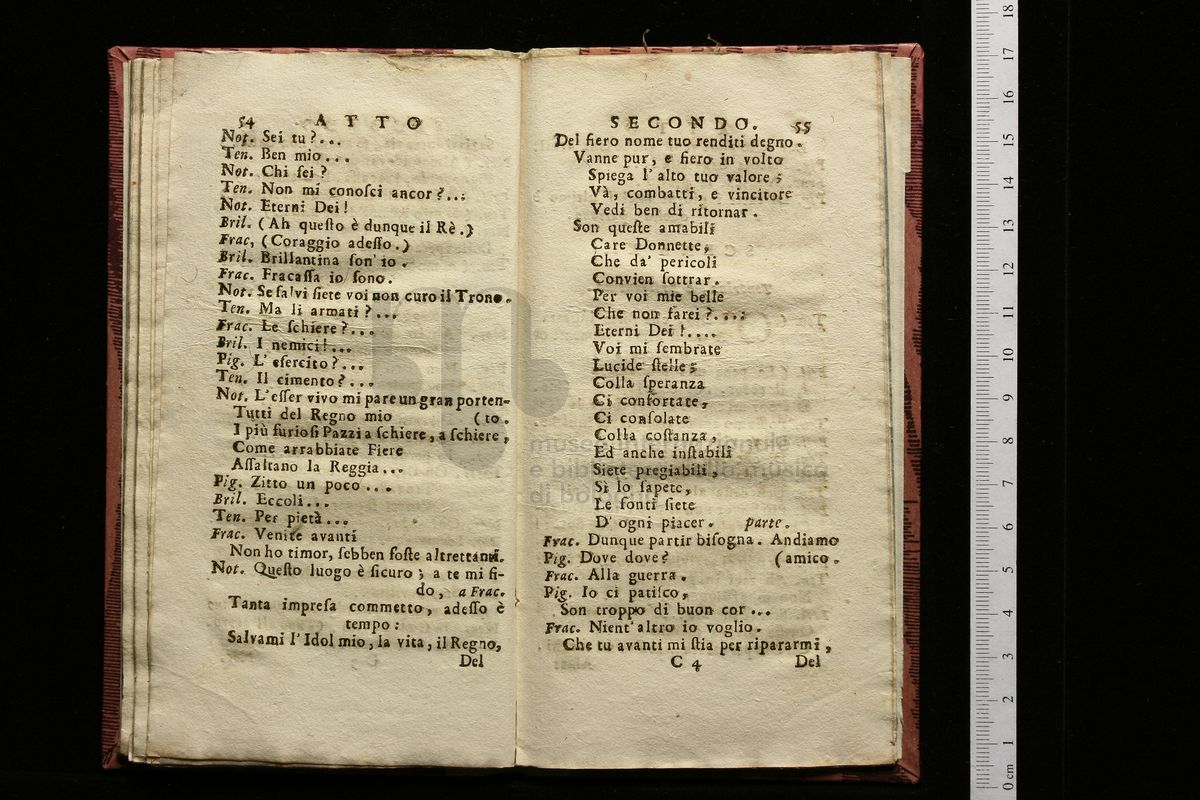 54 ATTO
Not. Sei tu?...
Ten. Ben mio...
Not. Chi ſei?
Ten. Non mi conoſci ancor?...
Not. Eterni Dei!
Bril. (Ah queſto è dunque il Rè.)
Frac. (Coraggio adeſſo.)
Bril. Brillantina ſon' io.
Frac. Fracaſſa io ſono.
Not. Se ſalvi ſiete voi non curo il Trono.
Ten. Ma li armati?...
Frac. Le ſchiere?...
Bril. I nemici!...
Pig. L' eſercito?...
Ten. Il cimento?...
Not. L'eſſer vivo mi pare un gran porten-
Tutti del Regno mio (to.
I più furioſi Pazzi a ſchiere, a ſchiere,
Come arrabbiate Fiere
Aſſaltano la Reggia...
Pig. Zitto un poco...
Bril. Eccoli...
Ten. Per pietà...
Frac. Venite avanti
Non ho timor, ſebben foſte altrettanti.
Not. Queſto luogo è ſicuro; a te mi fi-
do, a Frac.
Tanta impreſa commetto, adeſſo è
tempo:
Salvami l' Idol mio, la vita, il Regno,
Del
SECONDO. 55
Del fiero nome tuo renditi degno.
Vanne pur, e fiero in volto
Spiega l' alto tuo valore;
Và, combatti, e vincitore
Vedi ben di ritornar.
Son queſte amabili
Care Donnette,
Che da' pericoli
Convien ſottrar.
Per voi mie belle
Che non farei?....
Eterni Dei!....
Voi mi ſembrate
Lucide ſtelle;
Colla ſperanza
Ci confortate,
Ci conſolate
Colla coſtanza,
Ed anche inſtabili
Siete pregiabili,
Sì lo ſapete,
Le fonti ſiete
D' ogni piacer. parte.
Frac. Dunque partir biſogna. Andiamo
Pig. Dove dove? (amico.
Frac. Alla guerra.
Pig. Io ci patiſco,
Son troppo di buon cor...
Frac. Nient' altro io voglio.
Che tu avanti mi ſtia per ripararmi,
C 4 Del
0 cm 1 2 3 4 5 6 7 8 9 10 11 12 13 14 15 16 17 18